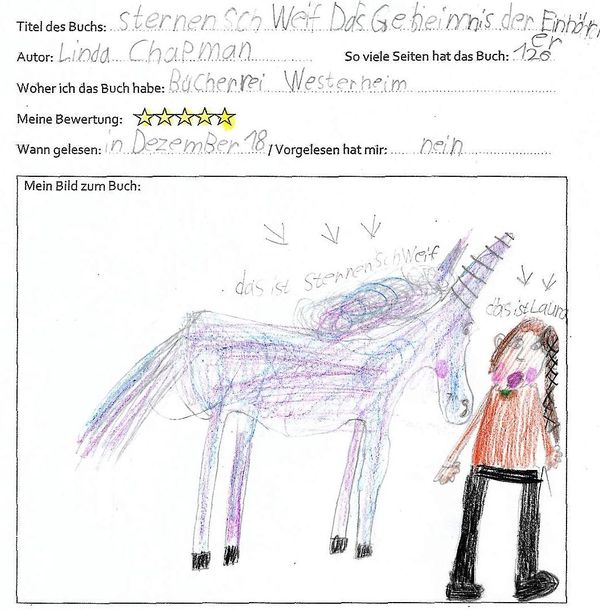 Titel des Buchs: sternenschweif Das Geheimnis der Einhörner
Autor: Linda Chapman So viele Seiten hat das Buch: 126
Woher ich das Buch habe: Bücherrei Westerheim
Meine Bewertung:
Wann gelesen: in Dezember 18 / Vorgelesen hat mir: nein
Mein Bild zum Buch:
das ist sternenschweif
das ist Laura